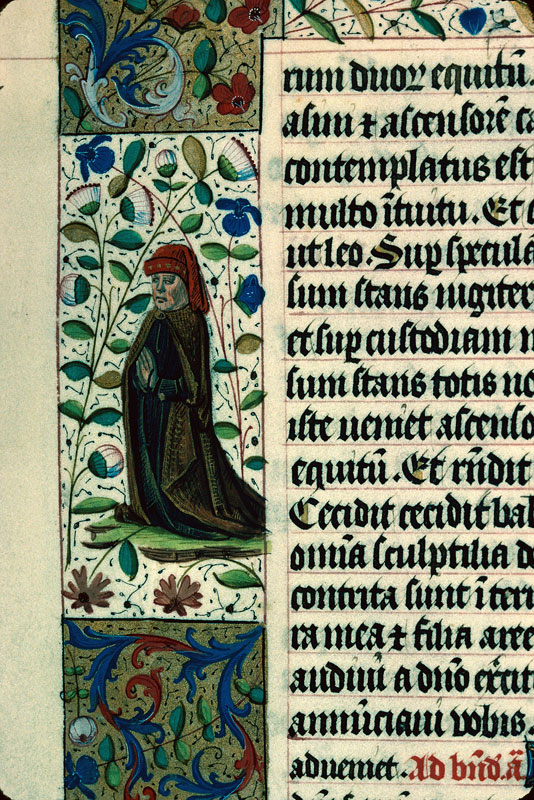 rum duoꝝ equitū.
asini ⁊ ascensorē ca
contemplatus est
multo ītuitu. Et c
ut leo. Sup specula
sum stans iugiter
et sup custodiam m
sum stans totis no
iste ueniet ascenso
equitū. Et rn̄dit
Cecidit cecidit bab
omīa sculptilia de
contrita sunt ī terr
ra mea ⁊ filia aree
audiui a dn̄o exercit
annūciaui vobis.
adueniet. Ad bn̄d. ā